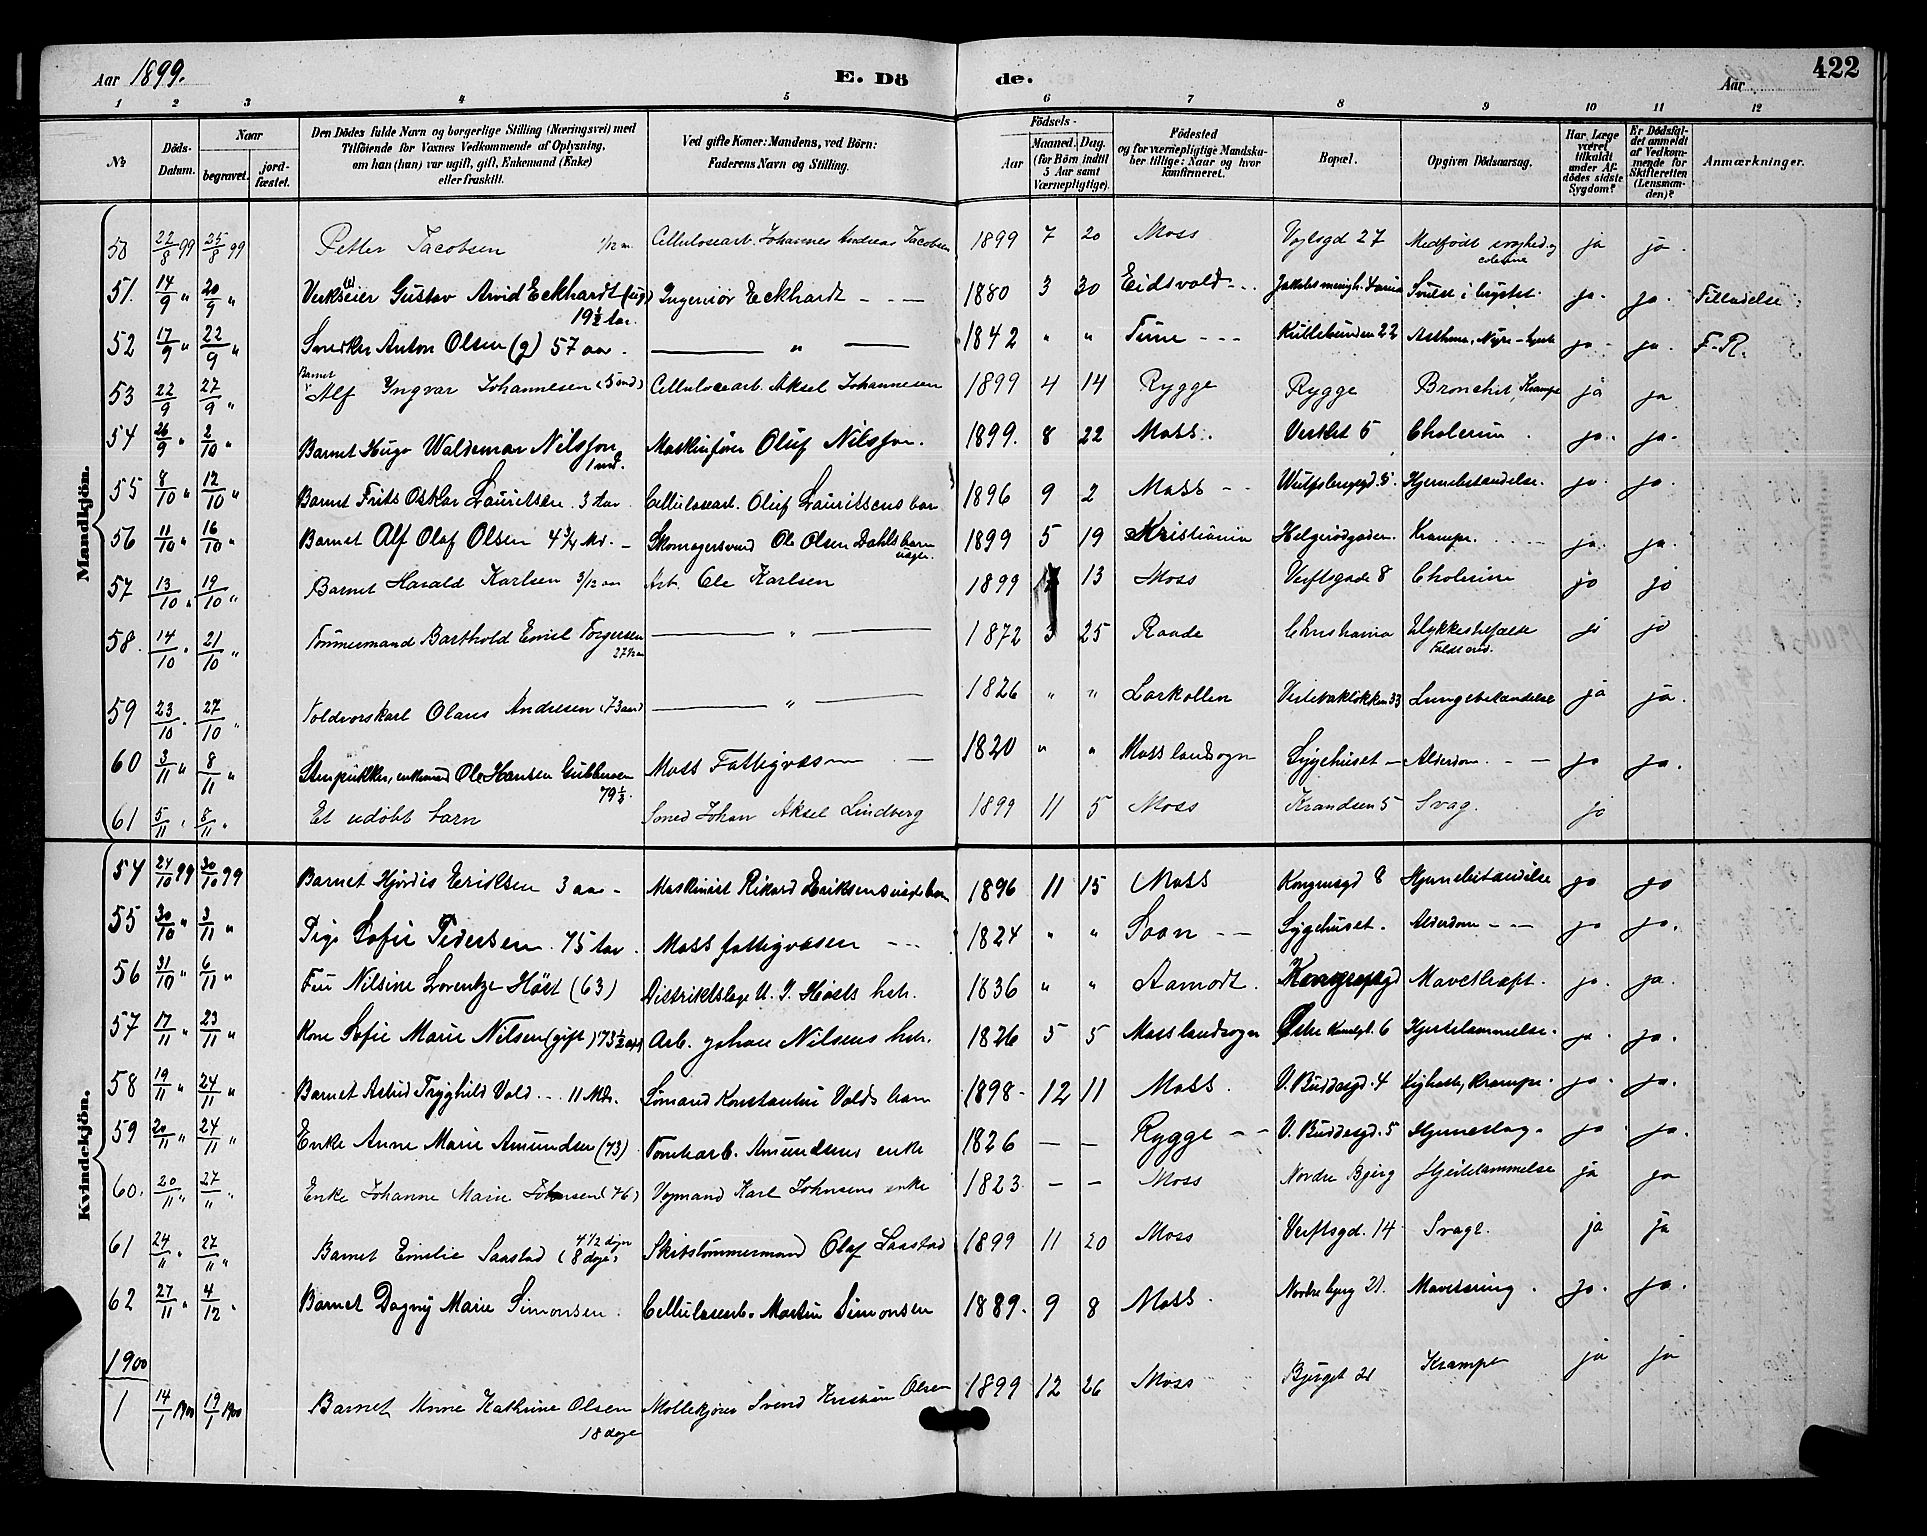 Aar 1899. E. Dö de. Aar 422
1 2 3 4 5 6 7 8 9 10 11 12
No
Döds-Datum.
Naar
begravet.
jord-fæstet.
Den Dödes fulde Navn og borgerlige Stilling (Næringsvei) med
Tilföiende for Voxnes Vedkommende af Oplysning,
om han (hun) var ugift, gift, Enkemand (Enke)
eller fraskilt.
Ved gifte Koner: Mandens, ved Börn:
Faderens Navn og Stilling.
Födsels-
Aar
Maaned. Dag.
(for Börn indtil
5 Aar samt
Værnepligtige)
Födested
og for værnepligtige Mandska-
ber tillige: Naar og hvor
konfirmeret.
Bopæl.
Opgiven Dödsaarsag.
Har Læge
været
tilkaldt
under Af-
dödes sidste
Sygdom?
Er Dödsfal-
det anmeldt
af Vedkom-
mende for
Skifteretten
(Lensman-
den)?
Anmærkninger.
Mandkjön.
50 22/8 99 25/8 99 Petter Jacobsen 1/12 m Cellulosearb. Johannes Andreas Jacobsen 1899 7 20 Moss Vogtsgd 27 Medfödt svaghed og colerine ja ja.
51. 14/9 " 20/9 " Verkseier Gustav Arvid Eckhardt (ug) 19½ Aar. Ingeniör Eckhardt 1880 3 30 Eidsvold Svulst i brystet. ja. ja. Tilladelse
52 17/9 " 22/9 " Snedker Anton Olsen (g) 57 aar. " 1842 " " Tune 22 Asthma, Nyre- ja ja. F.R.
53 22/9 27/9 " Barnet Alf Yngvar Johannesen (5 md) Cellulosearb. Aksel Johannesen 1899 4 14 Rygge Rygge Bronchit, Krampe ja ja
54 26/9 " 2/10 " Barnet Hugo Waldemar Nilsson 1 md. Maskinförer Oluf Nilsson. 1899. 8 22 Moss. Verket 5 Cholerin. ja. ja.
55 8/10 " 12/10 " Barnet Frits Oskar Lauritsen. 3 Aar Cellulosearb. Oluf Lauritsens barn 1896 9 2 Moss Wulfsbergsgd. 5. Hjernebetændelse. ja. ja.
56 11/10 " 16/10 " Barnet Alf Olaf Olsen 4¾ Md. Skomagersvend Ole Olsen Dahls barn uægte. 1899 5 19 Kristiania Helgerödgaden. Krampe. ja. ja.
57 13/10 " 19/10 " Barnet Harald Karlsen 3/12 aar Arb. Ole Karlsen 1899 7 13 Moss Verftsgade 8 Cholerine ja ja
58. 14/10 " 21/10 " Tömmermand Barthold Emil Torgersen 27½ aar " 1872 3 25 Raade Christiania Ulykkestilfælde Faldt ned. ja ja
59 23/10 " 27/10 " Toldvorskarl Olaus Andresen (73 aar) " 1826 " " Larkollen Vestebakløkken 33 Lungebetændelse ja ja.
60 3/11 " 8/11 " Stenpukker, enkemand Ole Hansen 79½. Moss Fattigvæsen 1820 " " Moss landsogn Sygehuset Alderdom ja ja.
61 5/11 " 8/11 " Et udöbt barn Smed Johan Aksel Lindberg 1899 11 5 Moss Krandsen 5 Svag. ja
Kvindekjön.
54 24/10 99 30/10 99 Barnet Hjördis Eriksen 3 aar Maskinist Rikard Eriksens uægte barn 1896 11 15 Moss Kongensgd 8 Hjernebetændelse ja ja
55 30/10 " 3/11 " Pige Sofie Pedersen. 75 Aar. Moss fattigvæsen 1824 " " Soon Sygehuset. Alderdom ja ja.
56 31/10 " 6/11 " Fru Nilsine Lorentze Höst (63) Distriktslæge U. J. Hösts hstr. 1836 " " Aamodt. Kongensgd Mavekræft. ja. ja.
57 17/11 " 23/11 " Kone Sofie Marie Nilsen (gift) 73½ aar) Arb. Johan Nilsens hstr. 1826 5 5 Moss landsogn Østre Kanalgt. 6 Hjertelammelse. ja. ja.
58 19/11 " 24/11 " Barnet Astrid Tryghild Vold 11 Mdr. Sömand Konstantin Volds barn 1898 12 11 Moss. V. Buddesgd. 4 Kighoste, Krampe. ja. ja.
59 20/11 " 24/11 " Enke Anne Marie Amundsen (73) Tomtearb. Amundsens enke 1826 Rygge V. Buddesgd. 5 Hjerneslag. ja. ja.
60. 20/11 " 27/11 " Enke Johanne Marie Johnsen (76) Vognmand Karl Johnsens enke 1823 Moss Nordre Bjerg Hjertelammelse ja ja
61 24/11 " 27/11 " Barnet Emilie Saastad 4½ dögn (8 dage) Skibstömmermand Olaf Saastad 1899 11 20 Moss Verftsgd. 14 Svage. ja ja
62 27/11 " 4/12 " Barnet Dagny Marie Simonsen. Cellulosearb. Martin Simonsen 1889. 9 8 Moss. Nordre bjerg 21. Mavesaaring. ja. ja.
1900
1 14/1 1900 19/1 1900 Barnet Anne Kathrine Olsen 18 dage Möllekjörer Svend Kristian Olsen 1899 12 26 Moss Bjerget 21 Krampe ja ja